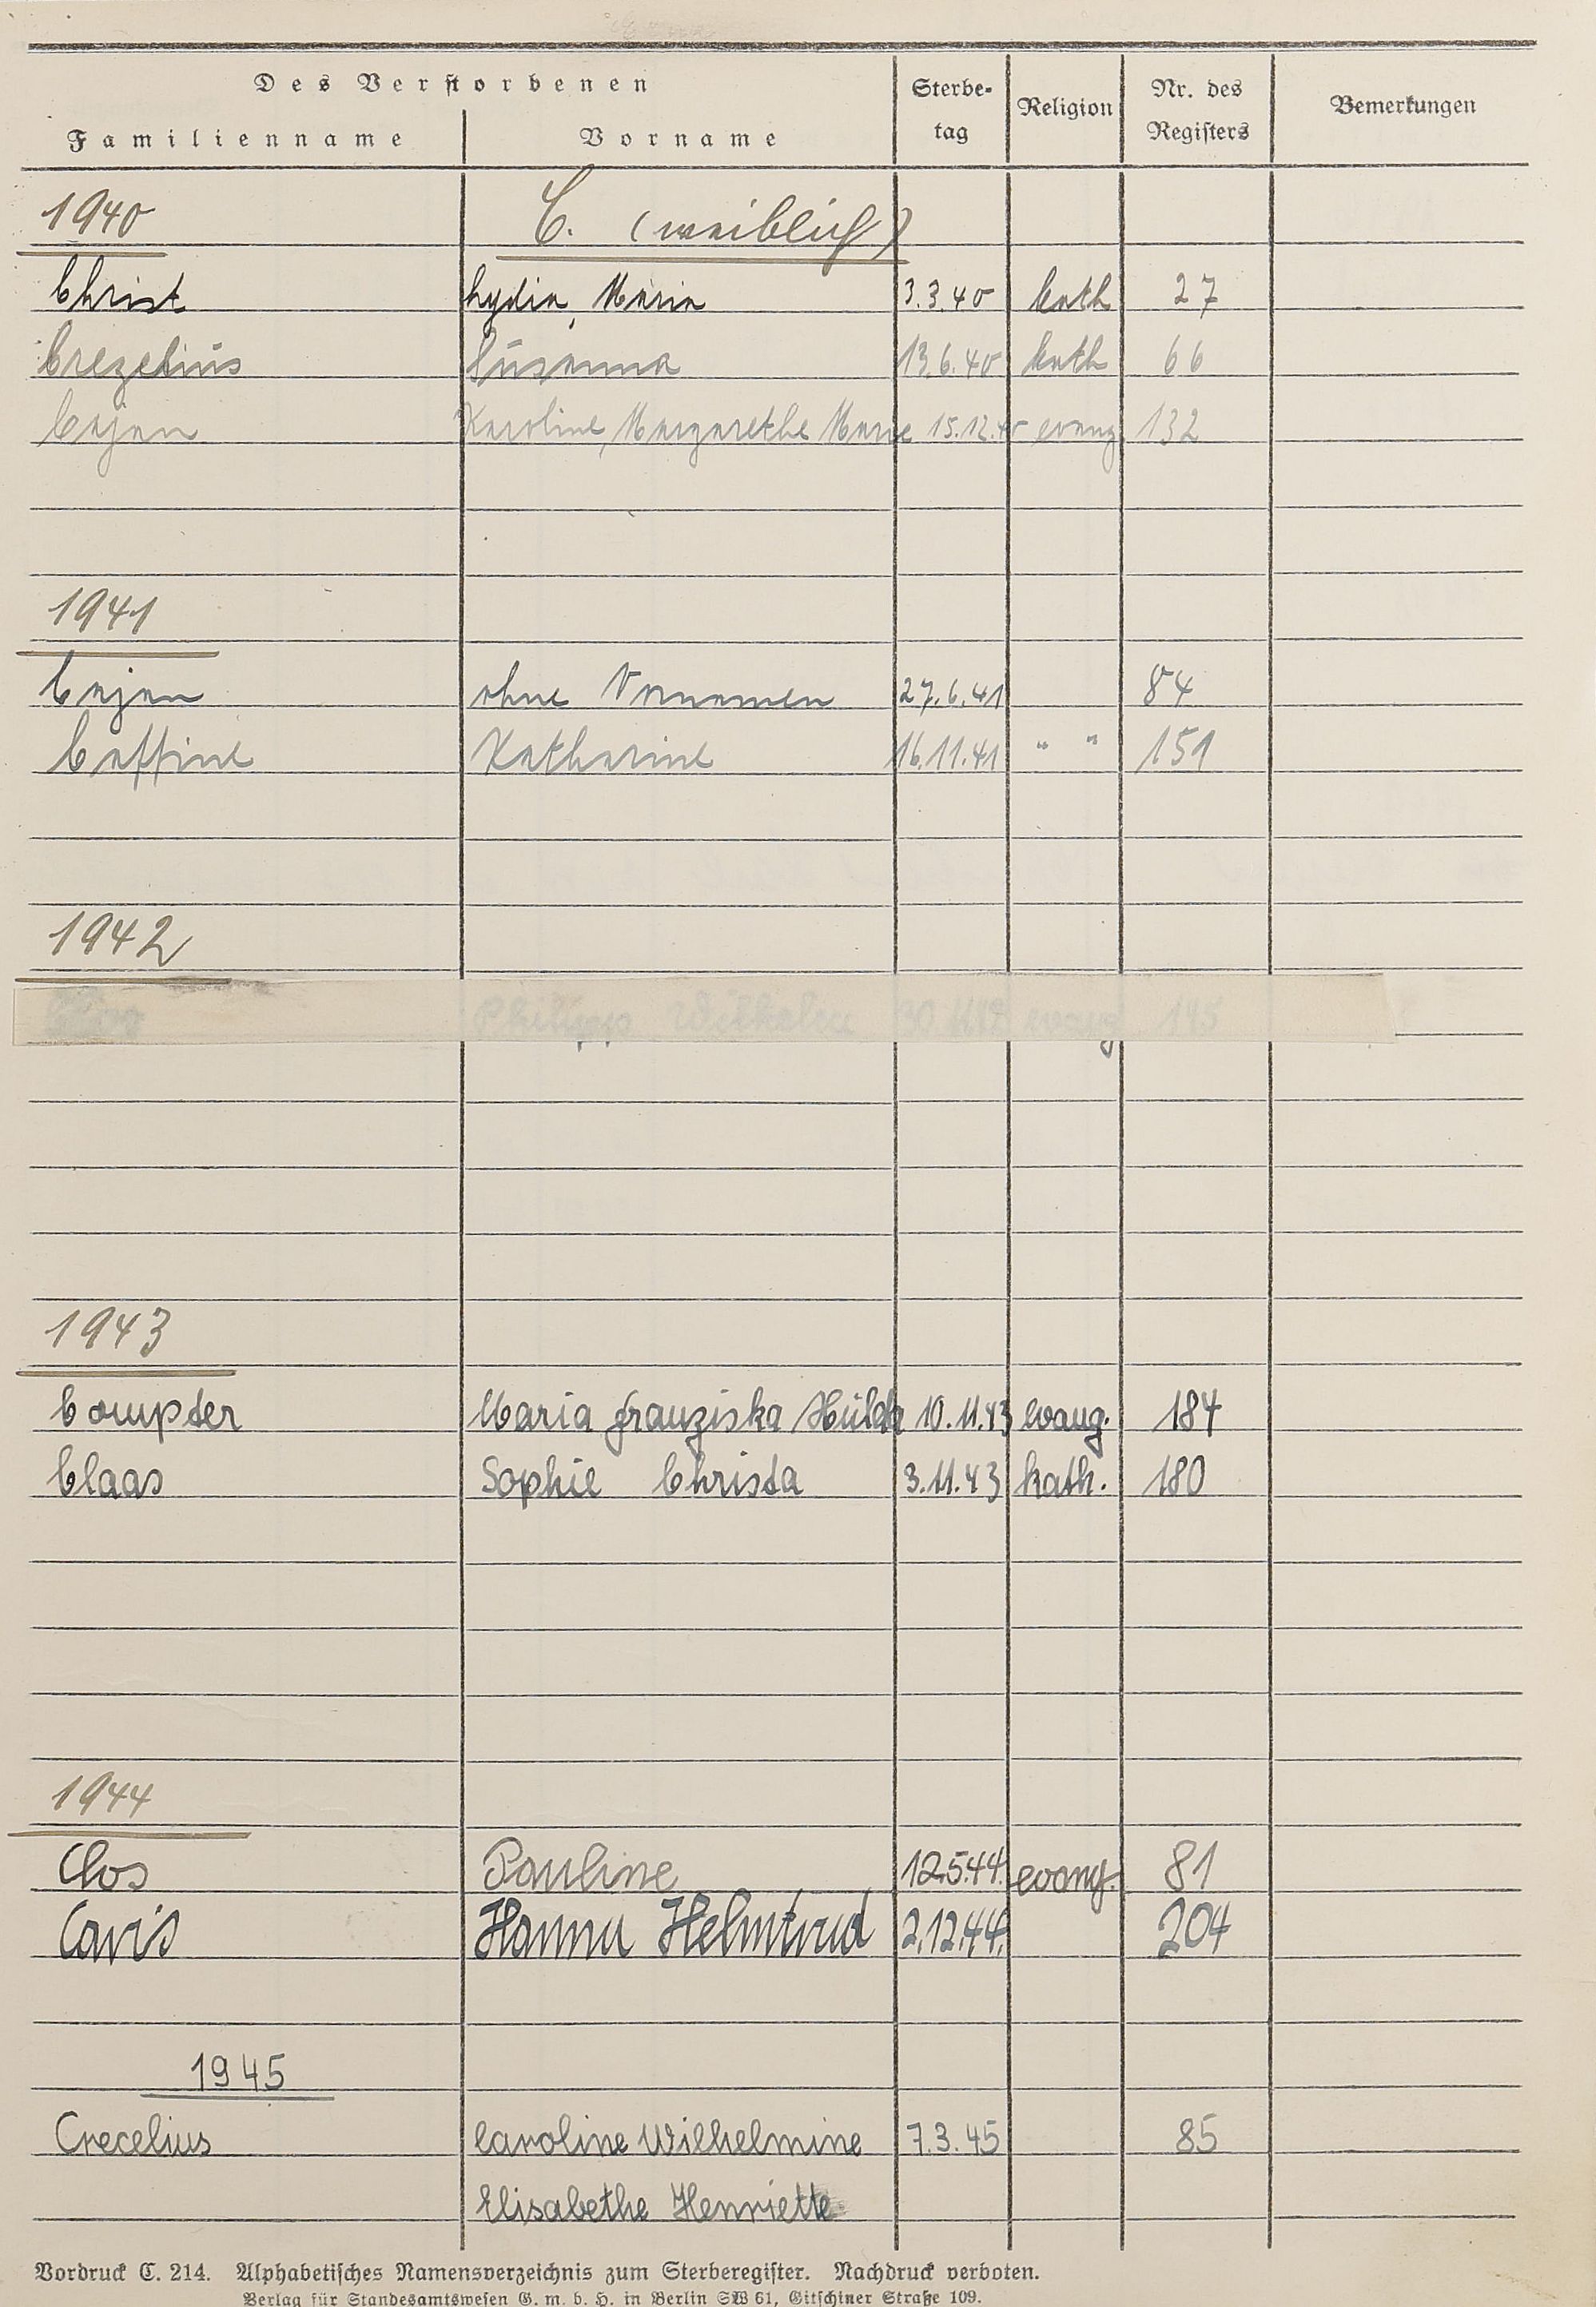 Des Verstorbenen
Familienname Vorname Sterbe-tag Religion Nr. des Registers Bemerkungen
1940 C. (weiblich)
Christ Lydia, Maria 3.3.40 kath 27
Crezelius Susanna 13.6.40 kath 66
Cajan Karoline, Margarethe Marie 15.12.40 evang 132
1941
Cajan ohne Vornamen 27.6.41 84
Caffine Katharine 16.11.41 " " 151
1942
Philipp Wilhelm 30 evang 145
1943
Compter Maria Franziska Hulda 10.11.43 evang. 184
Claas Sophie Christa 3.11.43 kath. 180
1944
Clos Pauline 12.5.44. evang. 81
Hanna Helmtrud 2.12.44. 204
1945
Crecelius Caroline Wilhelmine 7.3.45 85
Elisabethe Henriette
Vordruck C. 214. Alphabetisches Namensverzeichnis zum Sterberegister. Nachdruck verboten.
Verlag für Standesamtswesen G. m. b. H. in Berlin SW 61, Gitschiner Straße 109.